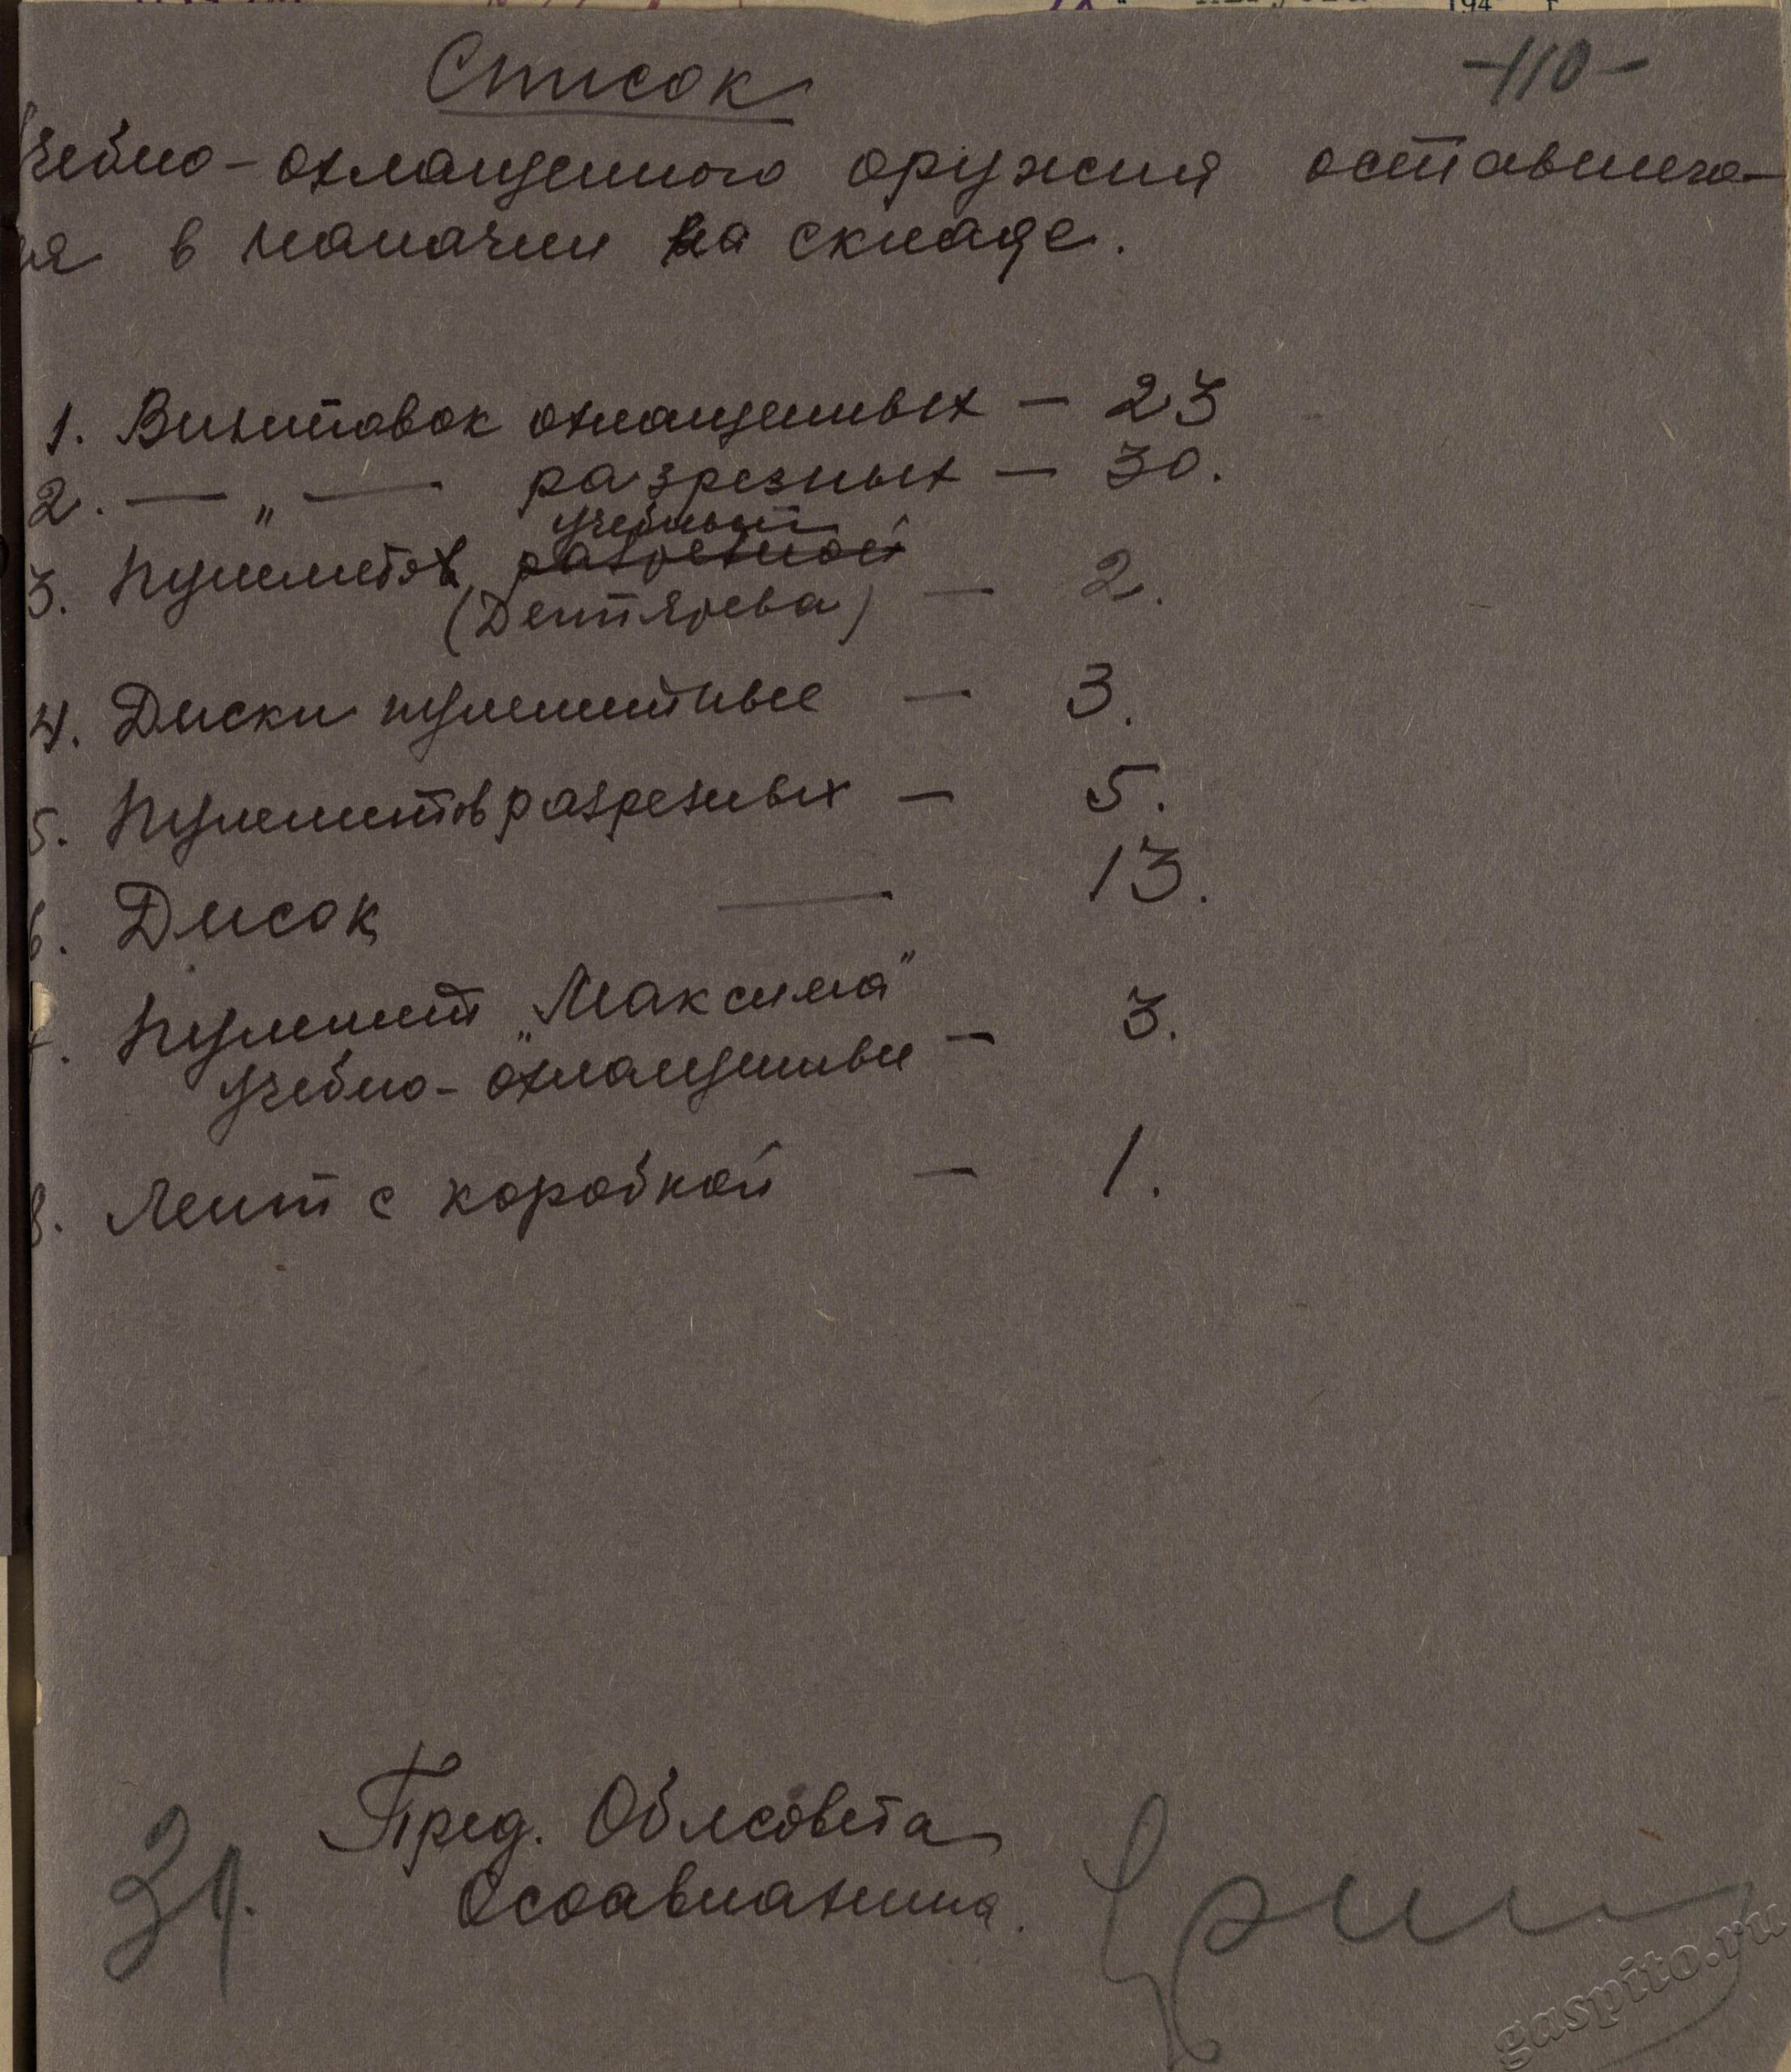 Список
-110-
Учебно-охлощенного оружия оставшего-
ся в наличии на складе.
1. Винтовок охлощенных — 23
2. — „ — разрезных — 30.
учебный
3. Пулеметов разрезной
(Дегтярева) — 2.
4. Диски пулеметные — 3.
5. Пулеметов разрезных — 5.
6. Дисок — 13.
7. Пулемет „Максима"
учебно-охлощенные — 3.
8. Лент с коробкой — 1.
Пред. Облсовета
Осоавиахима.
gaspito.ru